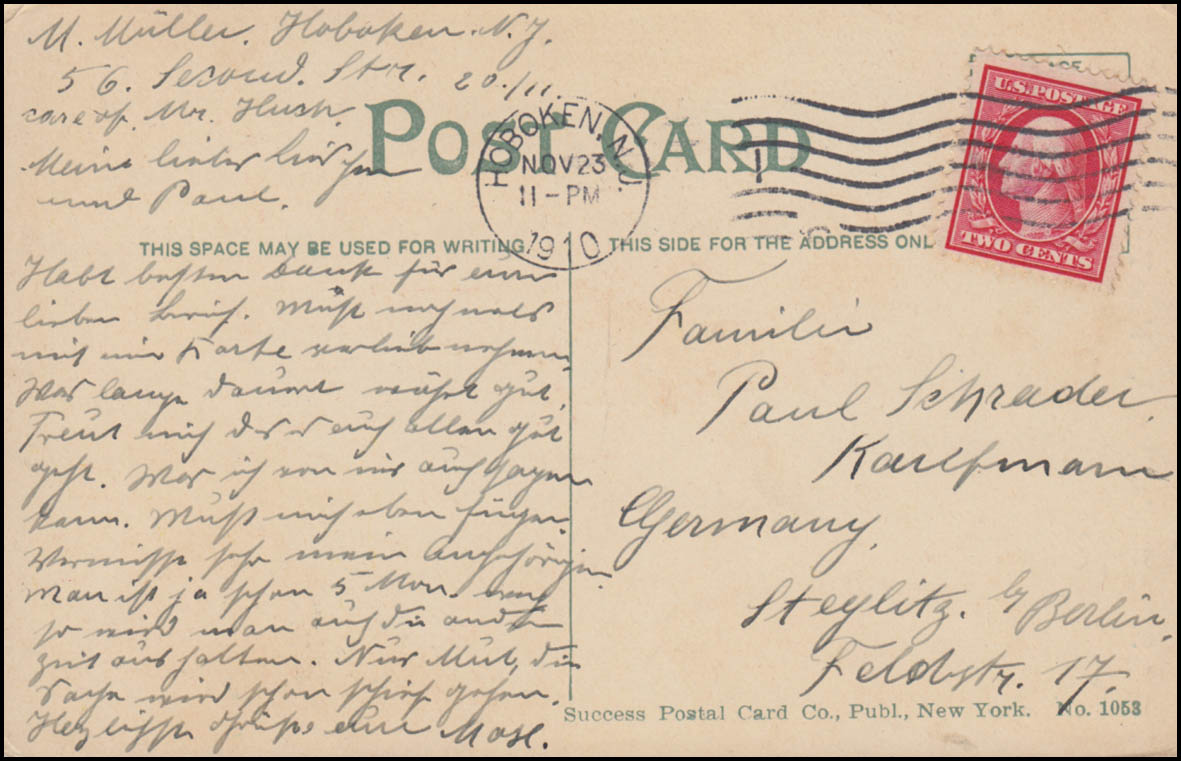 M. Müller. Hoboken. N.J.
56. Second. Str. 20./11.
care of. Mr. Hush.
Meine liebe
und Paul.
POST CARD
HOBOKEN, N.J.
NOV 23
11-PM
1910
U.S. POSTAGE
TWO CENTS
THIS SPACE MAY BE USED FOR WRITING
THIS SIDE FOR THE ADDRESS ONL
Habt besten Dank für eure
lieben Brief. Müßt nochmals
mit eine Karte vorlieb nehmen.
Was lange dauert währt gut.
Freut mich das es euch allen gut
geht. Was ich von mir auch sagen
kann. Muß mich eben fügen.
Vermisse sehr mein Angehörigen
Man ist ja schon 5 Mon. weg
so wird man auch die andre
Zeit aushalten. Nur Mut, die
Sache wird schon schief gehen.
Herzlichste Grüße eure Max.
Familie
Paul Schrader.
Kaufmann
Germany.
Steglitz. b/ Berlin.
Feldstr. 17.
Success Postal Card Co., Publ., New York. No. 1053